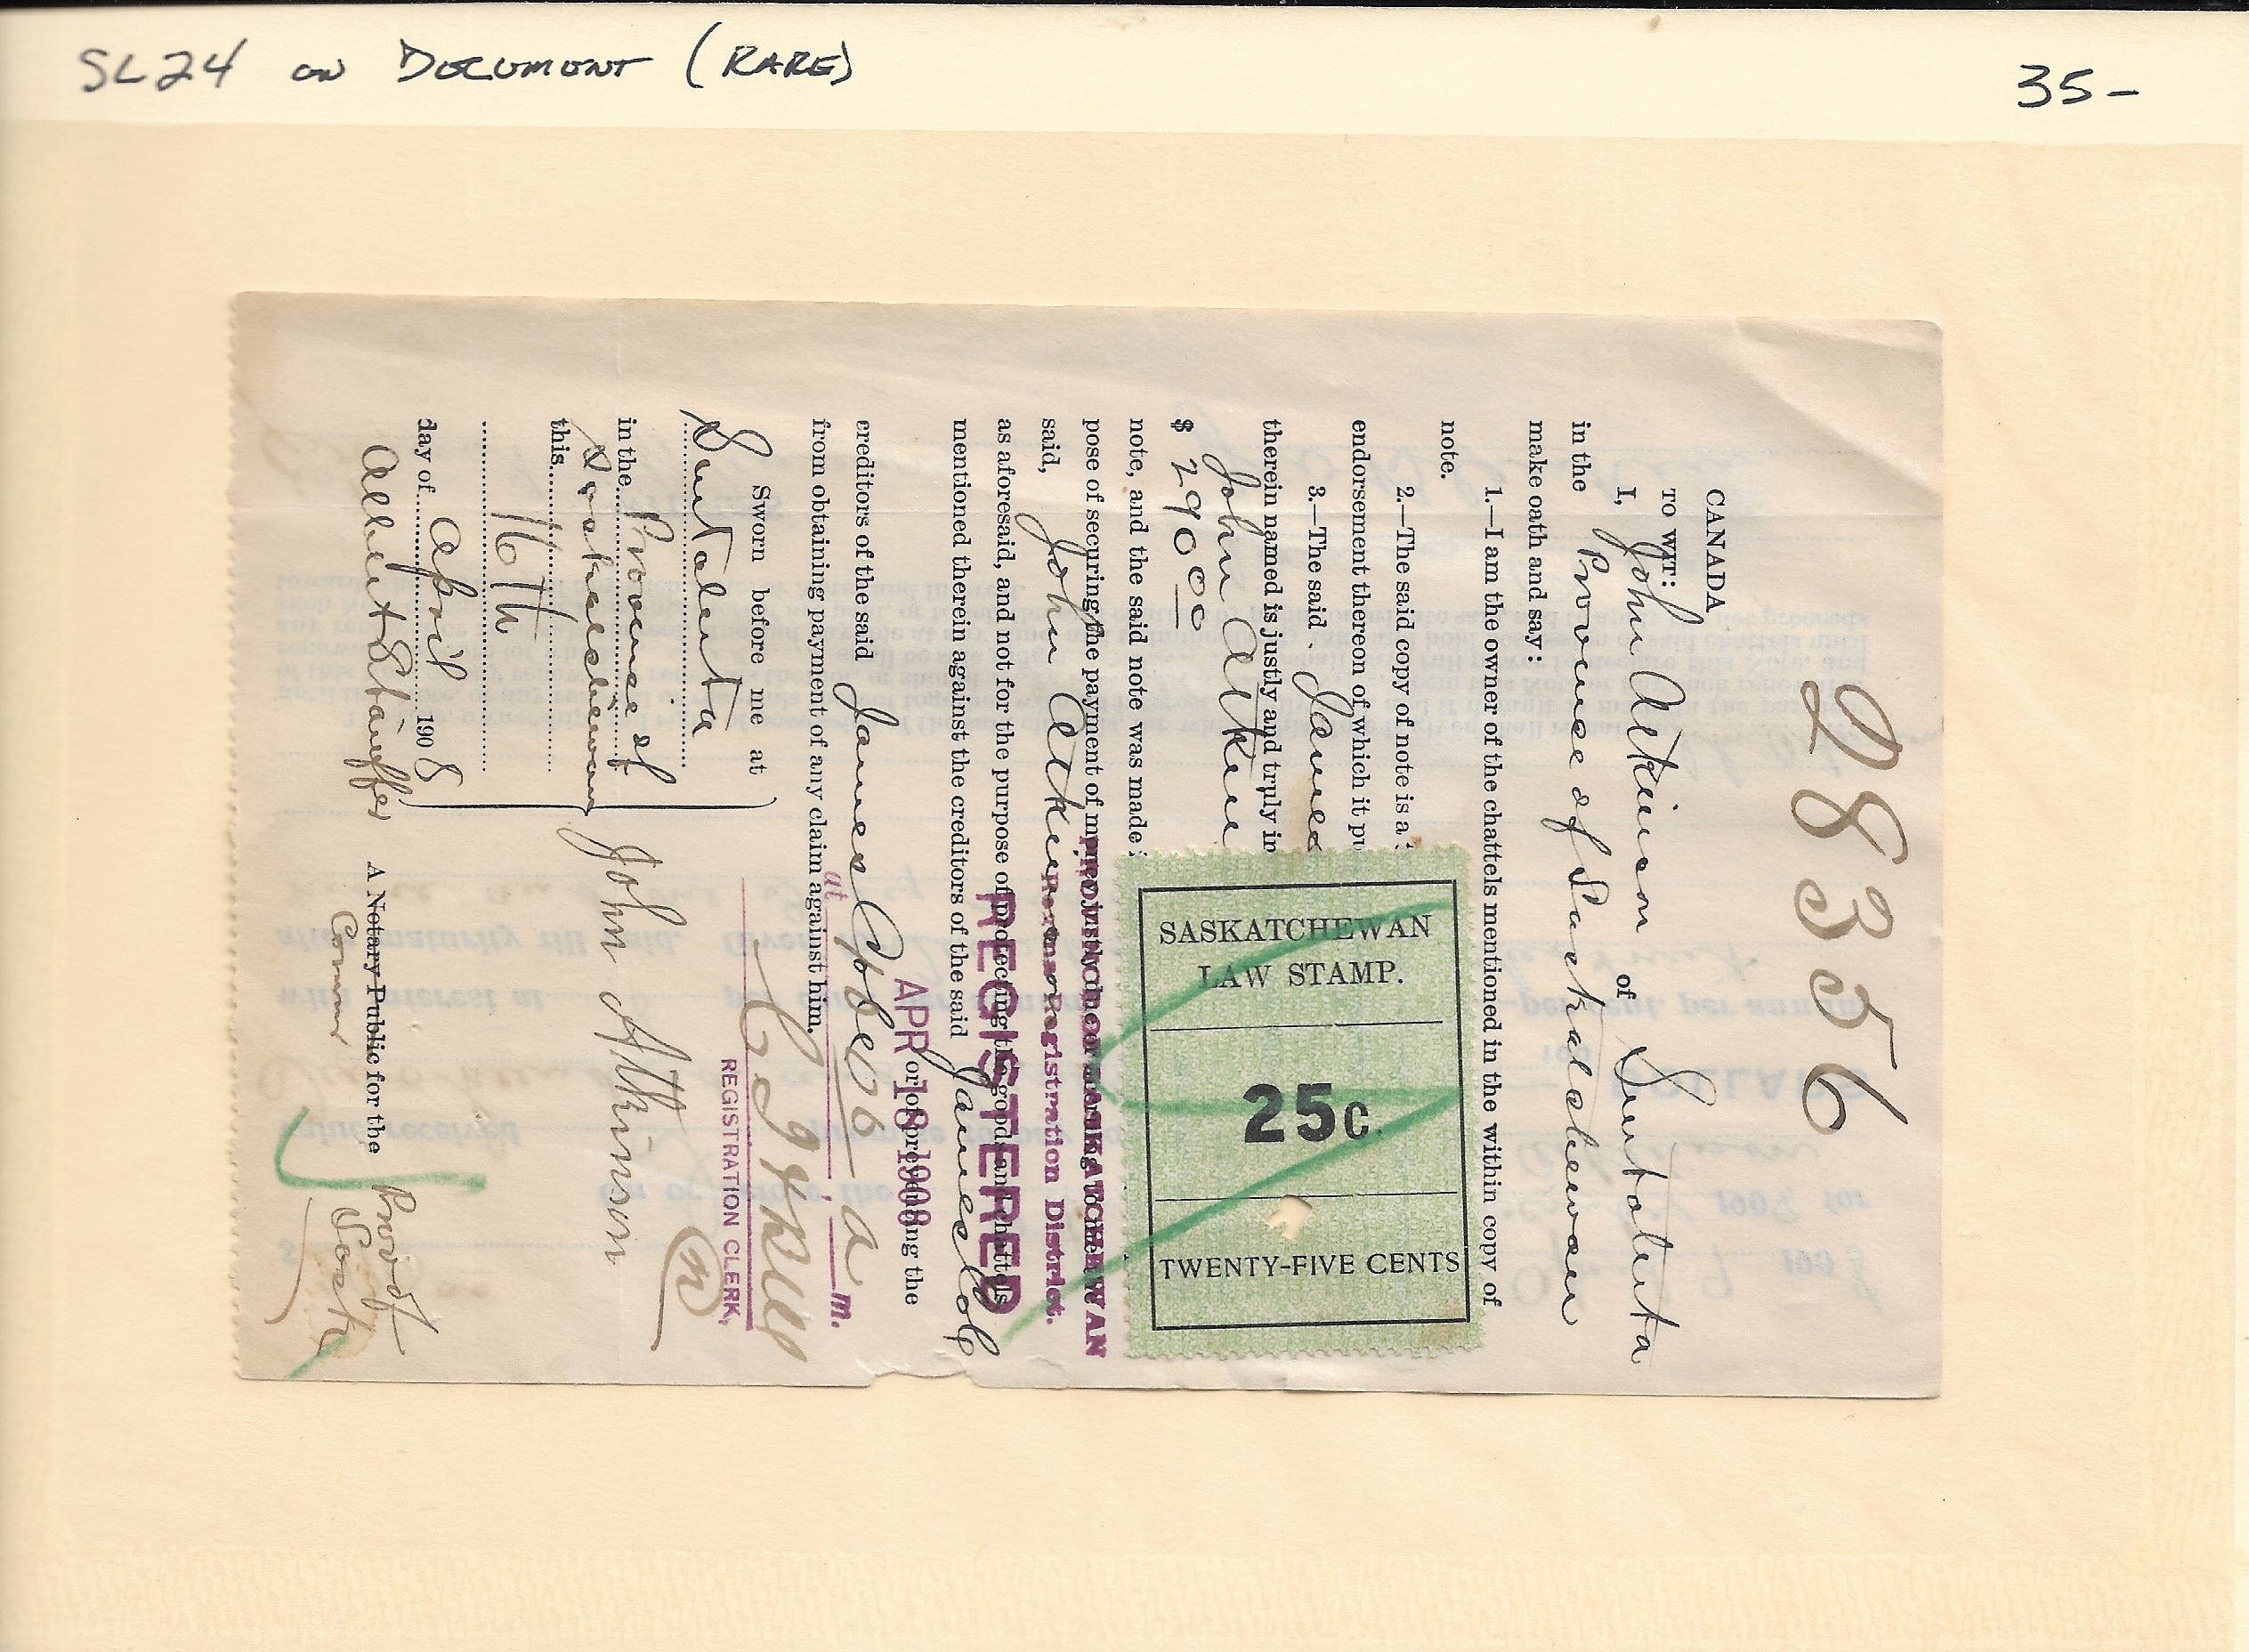 SL24 on DOCUMENT (RARE)
35-
28356
CANADA
TO WIT:
I, John Atkinson of Sintaluta
in the Province of Saskatchewan
make oath and say:
1.—I am the owner of the chattels mentioned in the within copy of
note.
2.—The said copy of note is a
endorsement thereon of which it pu
3.—The said James
therein named is justly and truly in
John Atkin
$ 290 00
note, and the said note was made
pose of securing the payment of
said, John Atkin
as aforesaid, and not for the purpose of protecting the goods and chattels
mentioned therein against the creditors of the said James
or of preventing the
creditors of the said James
from obtaining payment of any claim against him.
Sworn before me at
Sintaluta
in the Province of
Saskatchewan
this 16th
day of April 1908
Albert Stauffer
A Notary Public for the
Commr
Prov of
Sask
John Atkinson
SASKATCHEWAN
LAW STAMP.
25c.
TWENTY-FIVE CENTS
SASKATCHEWAN
Registration District.
REGISTERED
APR 18 1908
at a m.
REGISTRATION CLERK,